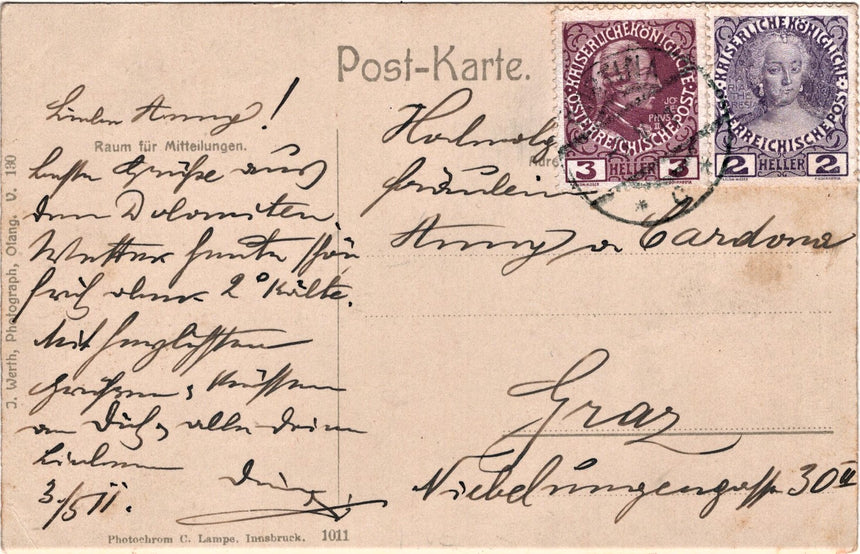 Post-Karte.
Raum für Mitteilungen.
Anny!
beste Grüße aus
den Dolomiten
Wetter heute schön
früh aber 2° Kälte.
Mit herzlichsten
Grüßen & Küssen
an Dich & alle Deine
Lieben
3/5 11.
Fräulein
Anny v Cardona
Graz
Nibelungengasse 30
KAISERLICHE KÖNIGLICHE
ÖSTERREICHISCHE POST
3 HELLER 3
KAISERLICHE KÖNIGLICHE
ÖSTERREICHISCHE POST
2 HELLER 2
J. Werth, Photograph, Olang. V. 130
Photochrom C. Lampe, Innsbruck. 1011